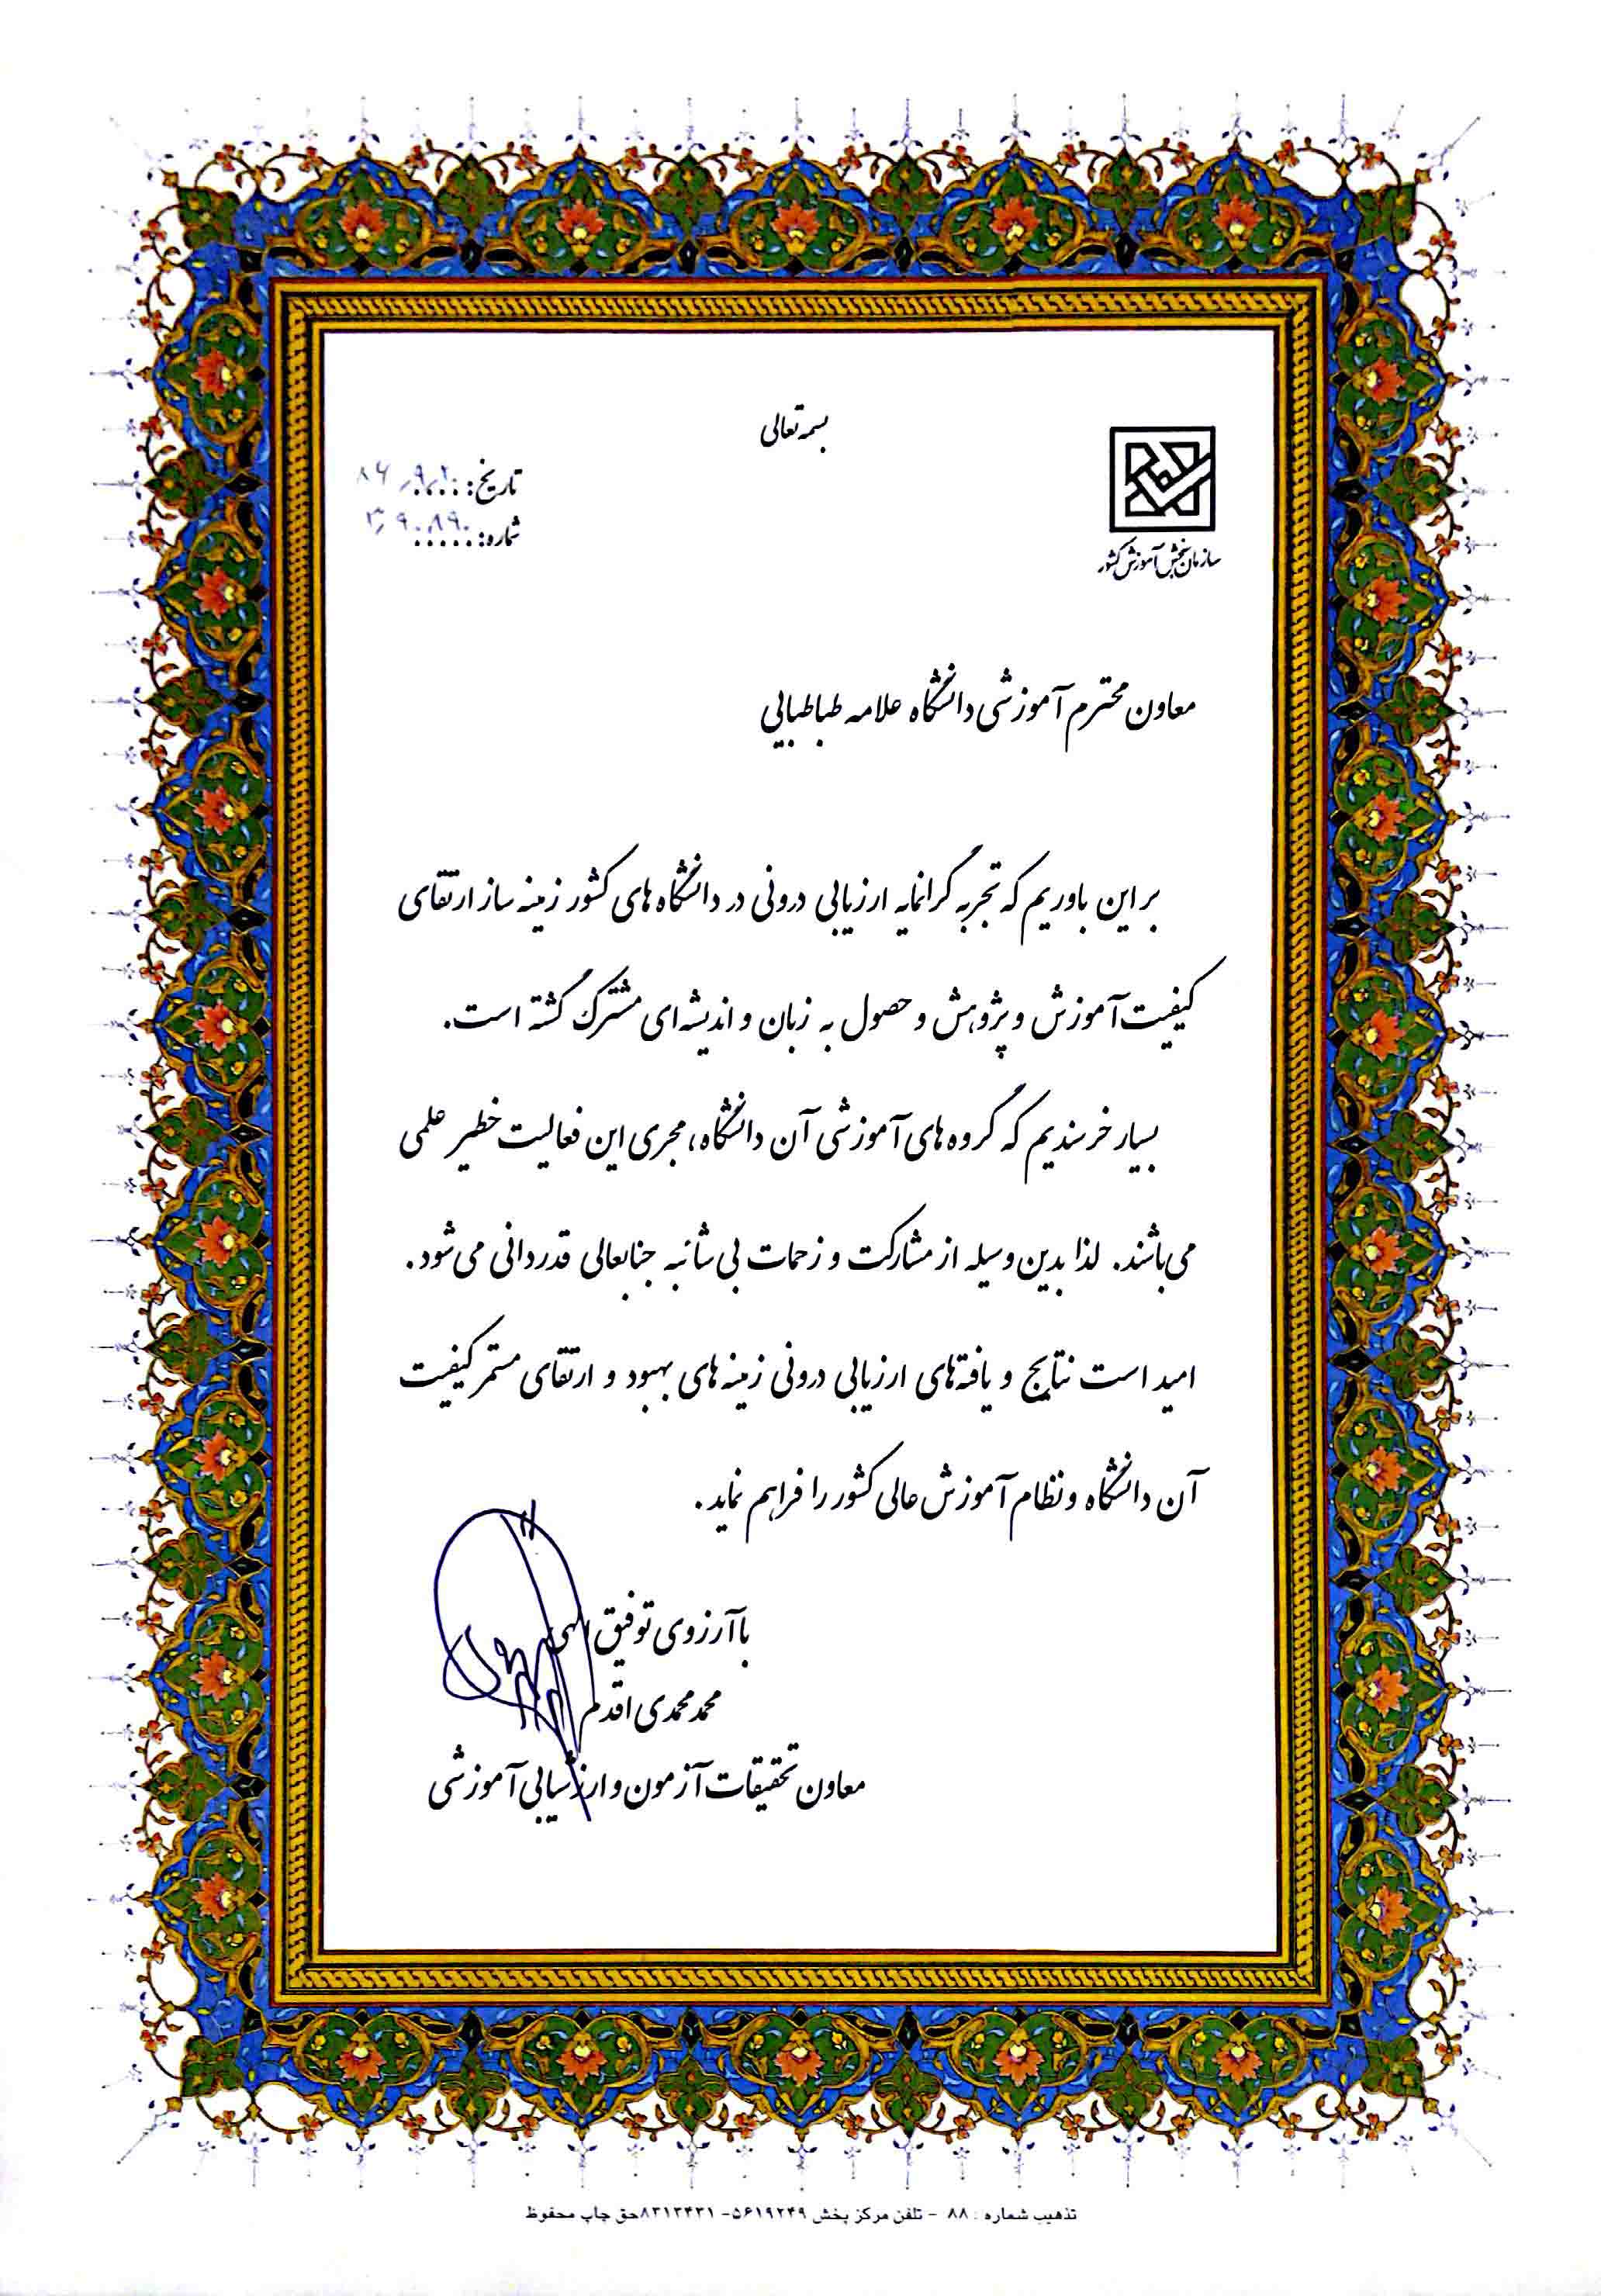 بسمه تعالی
سازمان سنجش آموزش کشور
تاریخ:
شماره:
معاون محترم آموزشی دانشگاه علامه طباطبایی
بر این باوریم که تجربه گرانمایه ارزیابی درونی در دانشگاه های کشور زمینه ساز ارتقای
کیفیت آموزش و پژوهش و حصول به زبان و اندیشه ای مشترک گشته است.
بسیار خرسندیم که گروه های آموزشی آن دانشگاه، مجری این فعالیت خطیر علمی
می باشند. لذا بدین وسیله از مشارکت و زحمات بی شائبه جنابعالی قدردانی می شود.
امید است نتایج و یافته های ارزیابی درونی زمینه های بهبود و ارتقای مستمر کیفیت
آن دانشگاه و نظام آموزش عالی کشور را فراهم نماید.
با آرزوی توفیق الهی
محمد محمدی اقدم
معاون تحقیقات آزمون و ارزشیابی آموزشی
تذهیب شماره : ۸۸ - تلفن مرکز پخش ۵۶۱۹۲۴۹- ۸۳۱۳۴۳۱حق چاپ محفوظ